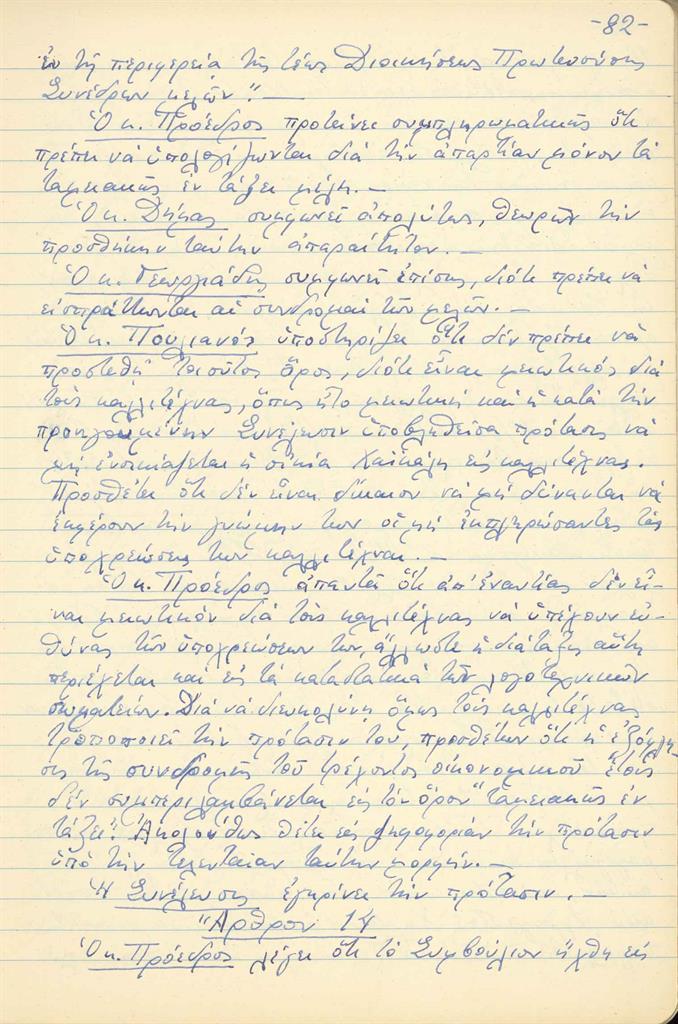 -82-
ἐν τῇ περιφερείᾳ τῆς τέως Διοικήσεως Πρωτευούσης
Συνέδρων μελῶν". —
Ὁ κ. Πρόεδρος προτείνει συμπληρωματικῶς ὅτι
πρέπει νὰ ὑπολογίζωνται διὰ τὴν ἀπαρτίαν μόνον τὰ
ταμειακῶς ἐν τάξει μέλη. —
Ὁ κ. Δήμας συμφωνεῖ ἀπολύτως, θεωρῶν τὴν
προσθήκην ταύτην ἀπαραίτητον. —
Ὁ κ. Γεωργιάδης συμφωνεῖ ἐπίσης, διότι πρέπει νὰ
εἰσπράττωνται αἱ συνδρομαὶ τῶν μελῶν. —
Ὁ κ. Πουλιανός ὑποστηρίζει ὅτι δὲν πρέπει νὰ
προστεθῇ τοιοῦτος ὅρος, διότι εἶναι μειωτικός διὰ
τοὺς καλλιτέχνας, ὅπως ἦτο μειωτική καὶ ἡ κατὰ τὴν
προηγουμένην Συνέλευσιν ὑποβληθεῖσα πρότασις νὰ
μὴ ἐνοικιάζεται ἡ οἰκία Χαϊκάλη εἰς καλλιτέχνας.
Προσθέτει ὅτι δὲν εἶναι δίκαιον νὰ μὴ δύνανται νὰ
ἐκφέρουν τὴν γνώμην των οἱ μὴ ἐκπληρώσαντες τὰς
ὑποχρεώσεις των καλλιτέχναι. —
Ὁ κ. Πρόεδρος ἀπαντᾶ ὅτι ἀπ' ἐναντίας δὲν εἶ-
ναι μειωτικόν διὰ τοὺς καλλιτέχνας νὰ ὑπέχουν εὐ-
θύνας τῶν ὑποχρεώσεών των, ἄλλωστε ἡ διάταξις αὕτη
περιέχεται καὶ εἰς τὰ καταστατικὰ τῶν λογοτεχνικῶν
σωματείων. Διὰ νὰ διευκολύνῃ ὅμως τοὺς καλλιτέχνας
τροποποιεῖ τὴν πρότασίν του, προσθέτων ὅτι ἡ ἐξόφλη-
σις τῆς συνδρομῆς τοῦ τρέχοντος οἰκονομικοῦ ἔτους
δὲν συμπεριλαμβάνεται εἰς τὸν ὅρον "ταμειακῶς ἐν
τάξει". Ἀκολούθως θέτει εἰς ψηφοφορίαν τὴν πρότασιν
ὑπὸ τὴν τελευταίαν ταύτην μορφήν. —
Ἡ Συνέλευσις ἐγκρίνει τὴν πρότασιν. —
Ἄρθρον 14
Ὁ κ. Πρόεδρος λέγει ὅτι τὸ Συμβούλιον ἤχθη εἰς